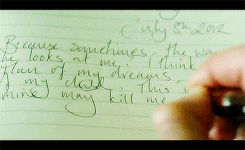 July 8th 2012
Because sometimes, the way
he looks at me? I think
plan of my dreams.
of my dead. This
mine may kill me